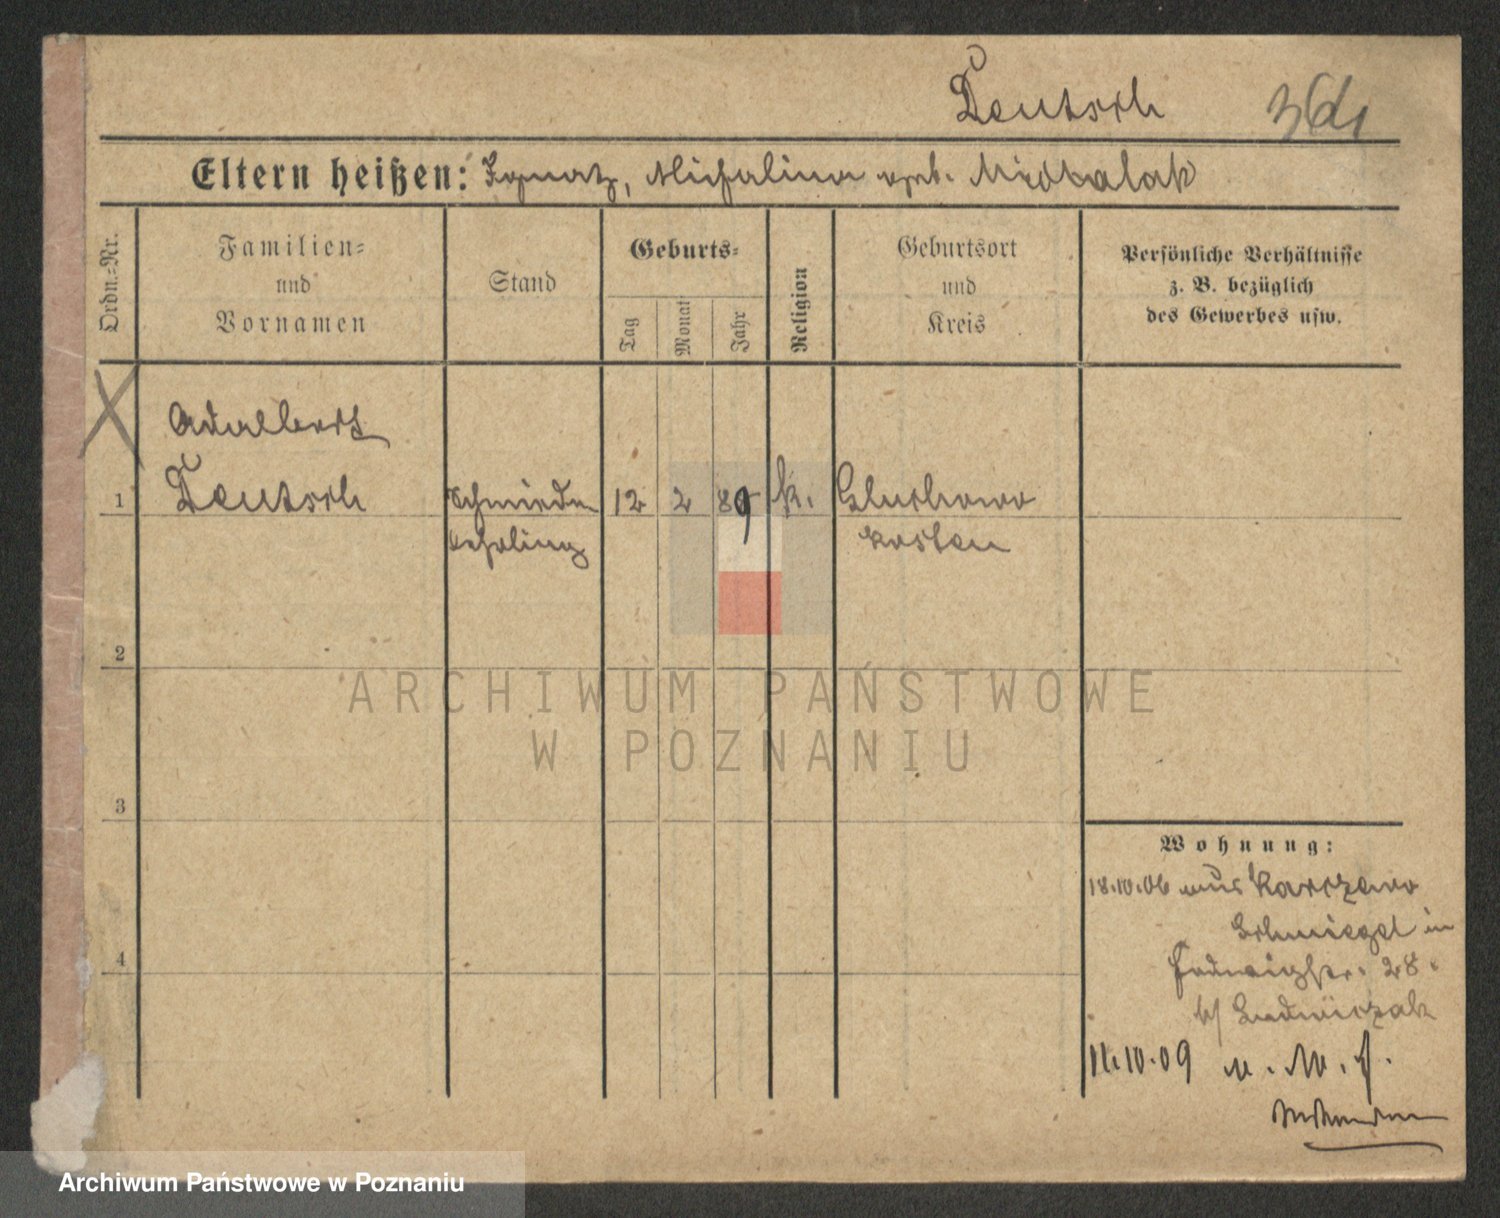 Deutsch 364
Eltern heißen: Ignatz, Michalina geb. Miedzalak
Ordn.=Nr.
Familien=
und
Vornamen
Stand
Geburts=
Tag
Monat
Jahr
Religion
Geburtsort
und
Kreis
Persönliche Verhältnisse
z. B. bezüglich
des Gewerbes usw.
Adalbert
1 Deutsch Schmiede 12 2 89 k. Gluchowo
lehrling Kosten
2
ARCHIWUM PAŃSTWOWE
W POZNANIU
3
Wohnung:
18.10.06 aus Karczewo
Schmiegel in
28
b/ Ludwiczak
4
11.10.09 n. M. f.
Archiwum Państwowe w Poznaniu